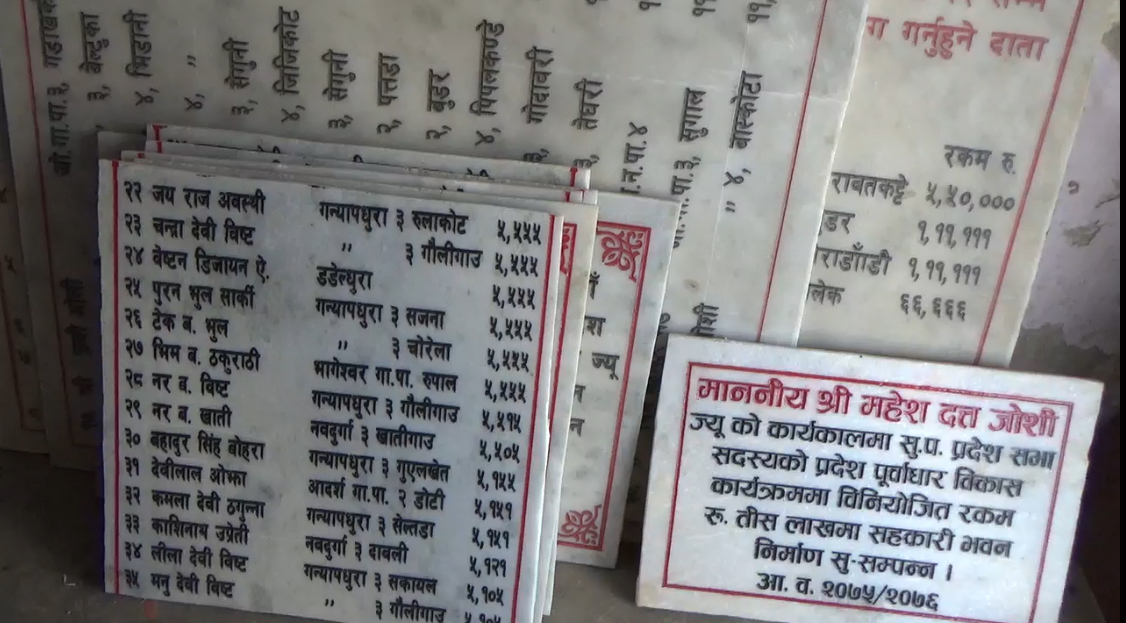 बेल्टुका
४, भिडानी
४, "
३, सेगुनी
४, जिजिकोट
३, सेगुनी
२, पत्तडा
२, बुडर
४, पिपलकण्डे
गोदावरी
३, तेघरी
न.पा.४
३, सुगाल
" ४, बास्कोटा
ग गर्नुहुने दाता
रकम रु.
५,५०,०००
डर १,११,१११
१,११,१११
लेक ६६,६६६
२२ जय राज अवस्थी गन्यापधुरा ३ रुलाकोट ५,५५५
२३ चन्द्रा देवी विष्ट " ३ गौलीगाउ ५,५५५
२४ वेष्टन डिजायन ऐ. डडेल्धुरा ५,५५५
२५ पुरन भुल सार्की गन्यापधुरा ३ सजना ५,५५५
२६ टेक ब. भुल " ३ चोरेला ५,५५५
२७ भिम ब. ठकुराठी भागेश्वर गा.पा. रुपाल ५,५५५
२८ नर ब. विष्ट गन्यापधुरा ३ गौलीगाउ ५,५१५
२९ नर ब. खाती नवदुर्गा ३ खातीगाउ ५,५०५
३० बहादुर सिंह बोहरा गन्यापधुरा ३ गुएलखेत ५,१५५
३१ देवीलाल ओझा आदर्श गा.पा. २ डोटी ५,१५१
३२ कमला देवी ठगुन्ना गन्यापधुरा ३ सेल्तडा ५,१५१
३३ काशिनाथ उप्रेती नवदुर्गा ३ दावली ५,१२१
३४ लीला देवी विष्ट गन्यापधुरा ३ सकायल ५,१०५
३५ मनु देवी विष्ट " ३ गौलीगाउ
ज्यू
माननीय श्री महेश दत्त जोशी
ज्यू को कार्यकालमा सु.प. प्रदेश सभा
सदस्यको प्रदेश पूर्वाधार विकास
कार्यक्रममा विनियोजित रकम
रू. तीस लाखमा सहकारी भवन
निर्माण सु-सम्पन्न ।
आ. व. २०७५/२०७६